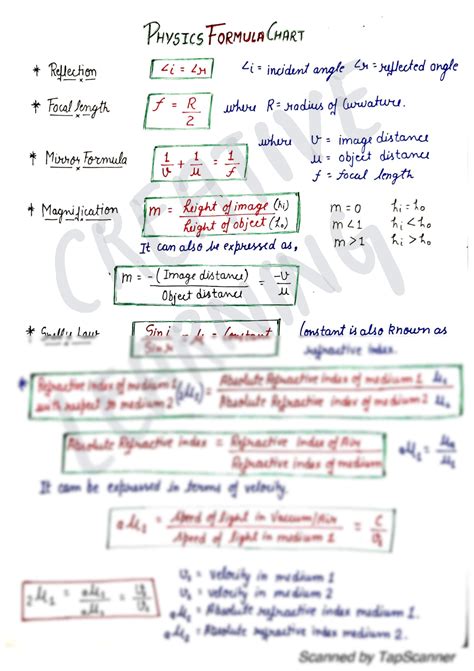 PHYSICS FORMULA CHART
* Reflection ∠i = ∠r ∠i = incident angle ∠r = reflected angle
* Focal length f = R/2 where R = radius of Curvature.
* Mirror Formula 1/v + 1/u = 1/f where v = image distance
u = object distance
f = focal length
* Magnification m = height of image (hi) / height of object (ho) m = 0 hi = ho
m < 1 hi < ho
m > 1 hi > ho
It can also be expressed as,
m = -(Image distance) / Object distance = -v/u
* Snell's Law Sin i / Sin r = μ = Constant Constant is also known as
refractive index.
Refractive index of medium 1 with respect to medium 2 = Absolute Refractive index of medium 1 / Absolute Refractive index of medium 2
Absolute Refractive index = Refractive index of Air / Refractive index of medium
It can be expressed in terms of velocity.
= Speed of light in Vacuum/Air / Speed of light in medium = C/v
= velocity in medium 1
= velocity in medium 2
= Absolute refractive index medium 1
= Absolute refractive index medium 2
CREATIVE LEARNING
Scanned by TapScanner